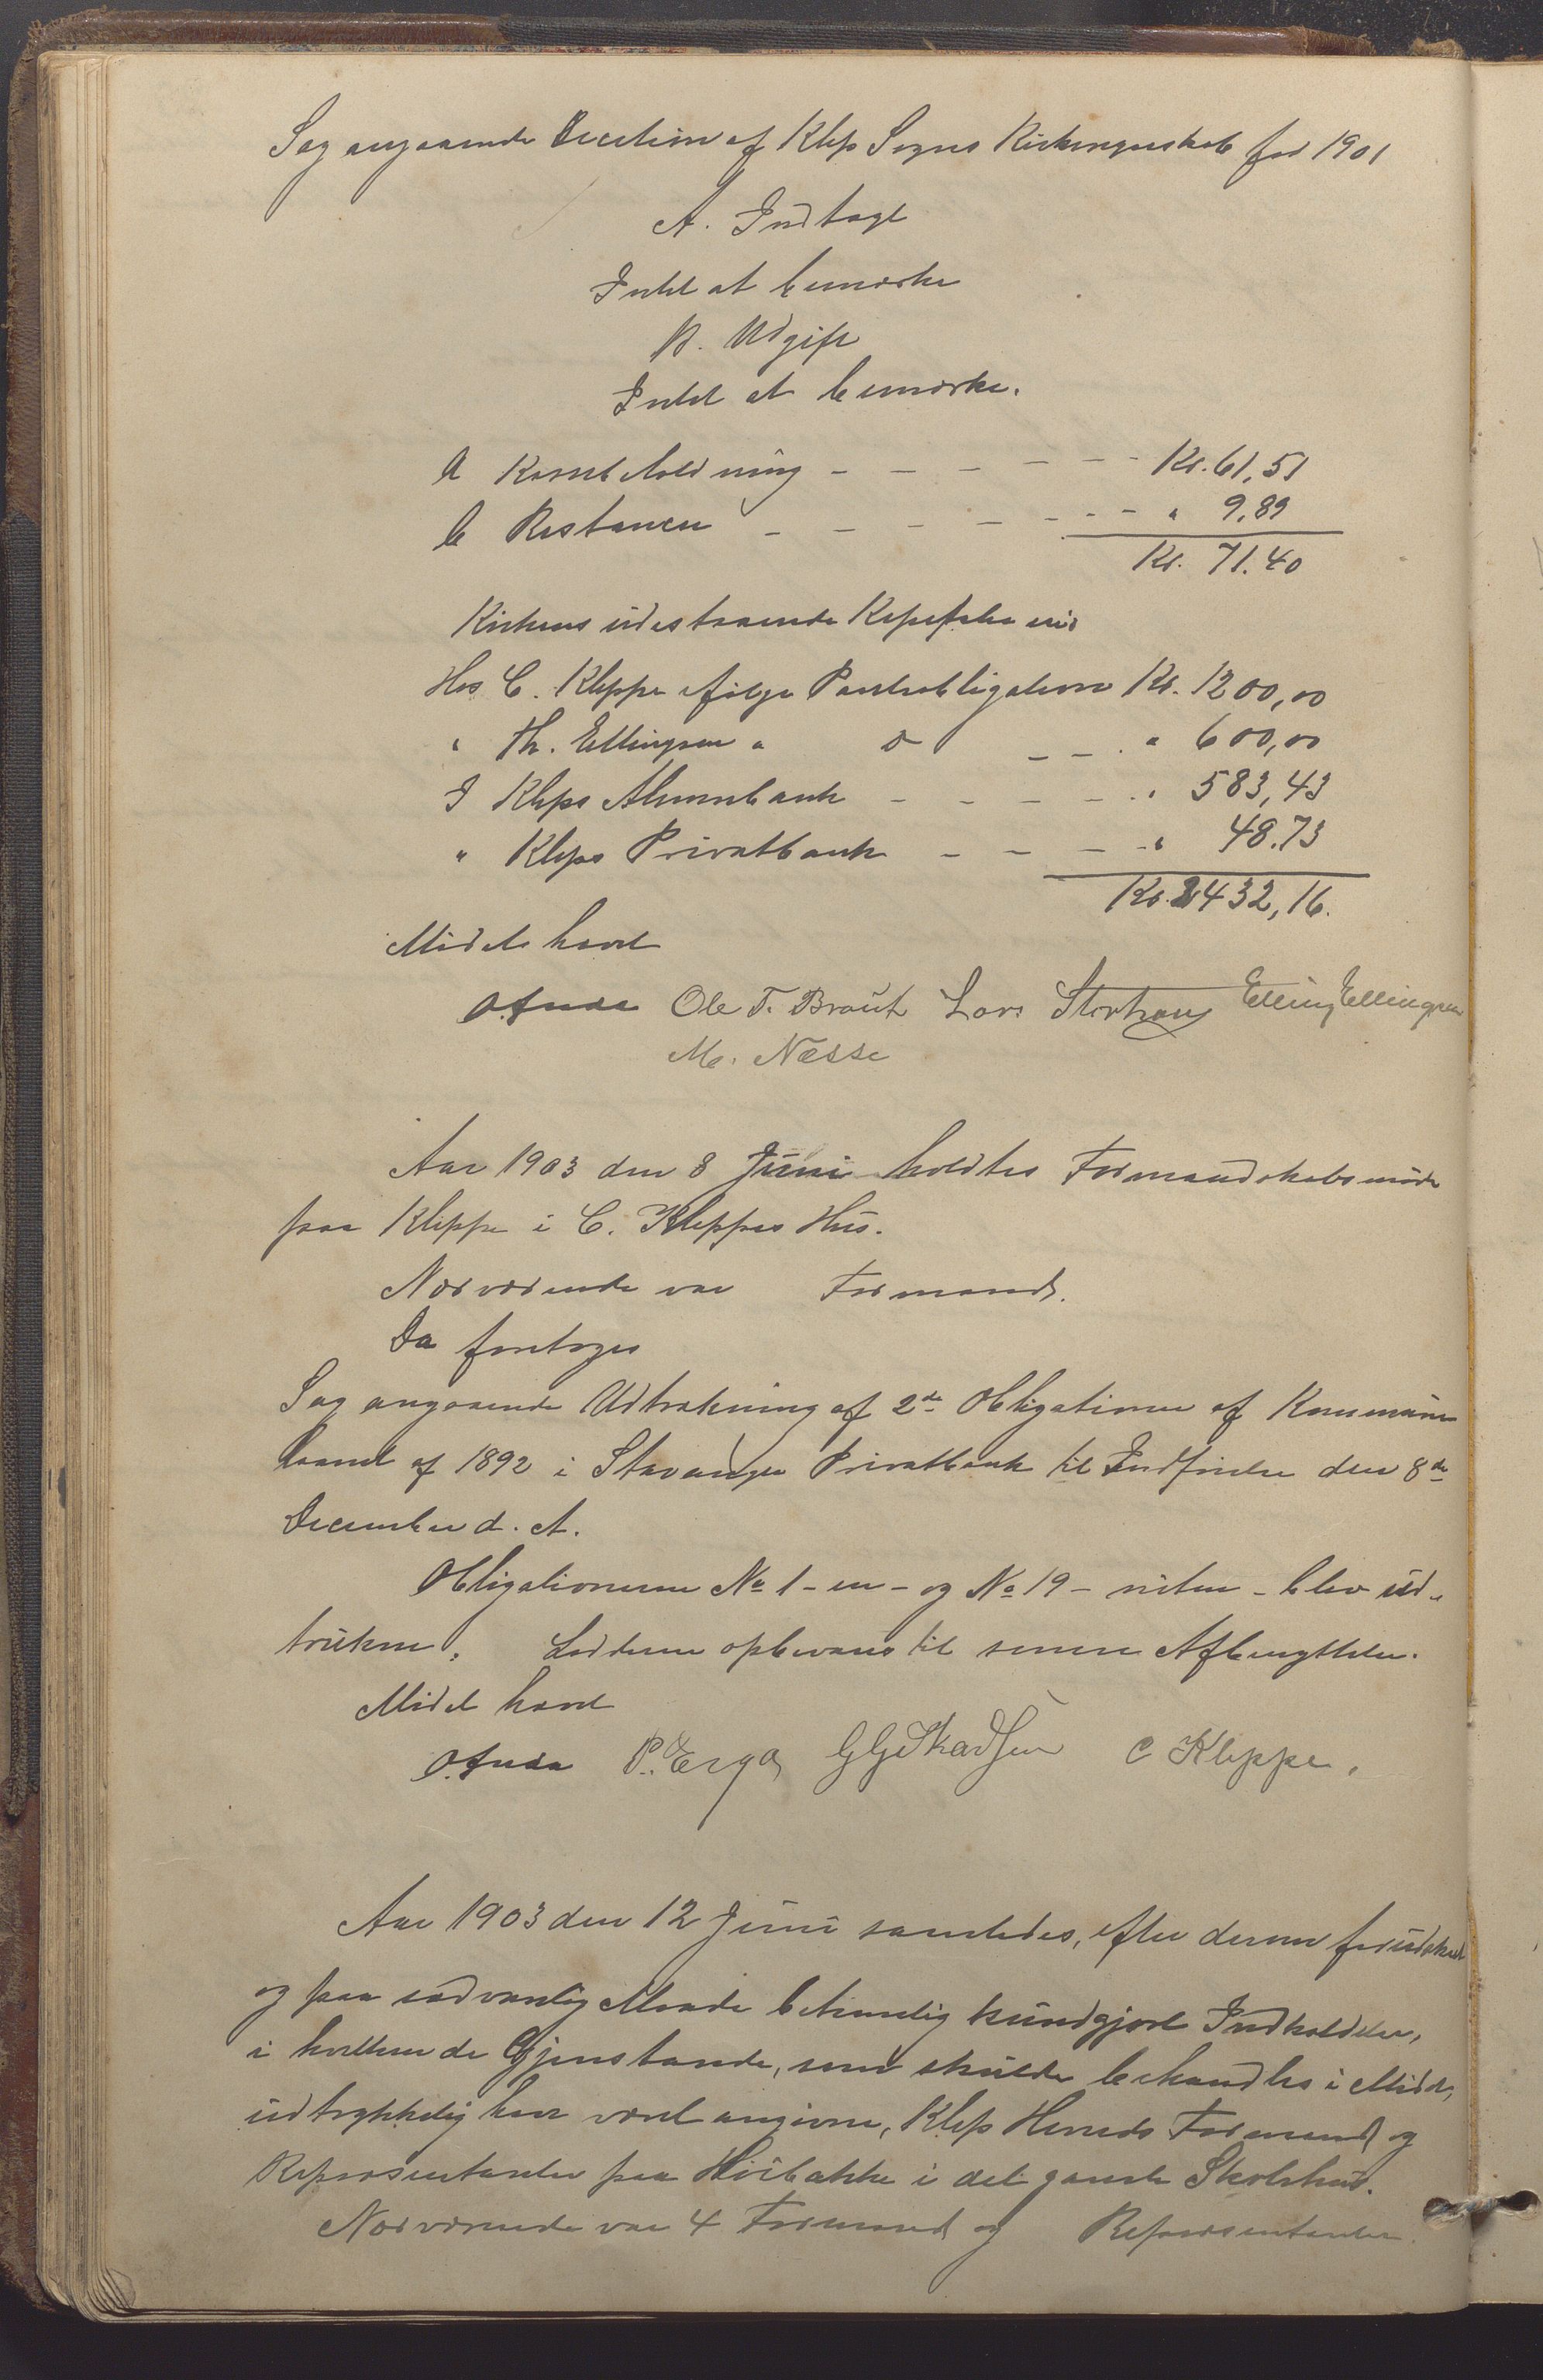 Sag angaaende Decision af Klep Sogns Kirkeregnskab for 1901
A. Indtægt
Intet at bemærke
B. Udgift
Intet at bemærke.
a Kassebeholdning - - - - - - Kr. 61,51
b Restancer - - - - - - - " 9,89
Kr. 71.40
Kirkens udestaaende Kapitaler
Hos C. Kleppe ifølge Pantobligation Kr. 1200,00
" Th. Ellingsen " do - - . " 600,00
I Kleps Almuebank - - - - . " 583,43
" Kleps Privatbank - - - - " 48.73
Kr. 2432,16.
Mødet hævet
O. Anda Ole T. Braut Lars Storhaug Elling Ellingsen
M. Næsse
Aar 1903 den 8 Juni holdtes Formandskabsmøde
paa Kleppe i C. Kleppes Hus.
Nærværende var Formænd.
Da foretoges
Sag angaaende Udtrækning af 2de Obligationer af Kommune
laanet af 1892 i Stavanger Privatbank til Indfrielse den 8de
December d. A.
Obligationerne No 1 - en - og No 19 - nitten - blev ud-
trukne. Lodderne opbevares til senere Afbenyttelse.
Mødet hævet
O. Anda P. Erga G G Skadsem C Kleppe.
Aar 1903 den 12 Juni samledes, efter derom forudskeet
og paa sædvanlig Maade betimelig kundgjort Indkaldelse,
i hvilken de Gjenstande, som skulde behandles i Mødet,
udtrykkelig have været angivne, Klep Herreds Formænd og
Repræsentanter paa Huibakke i det gamle Skolehus.
Nærværende var 4 Formænd og Repræsentanter.